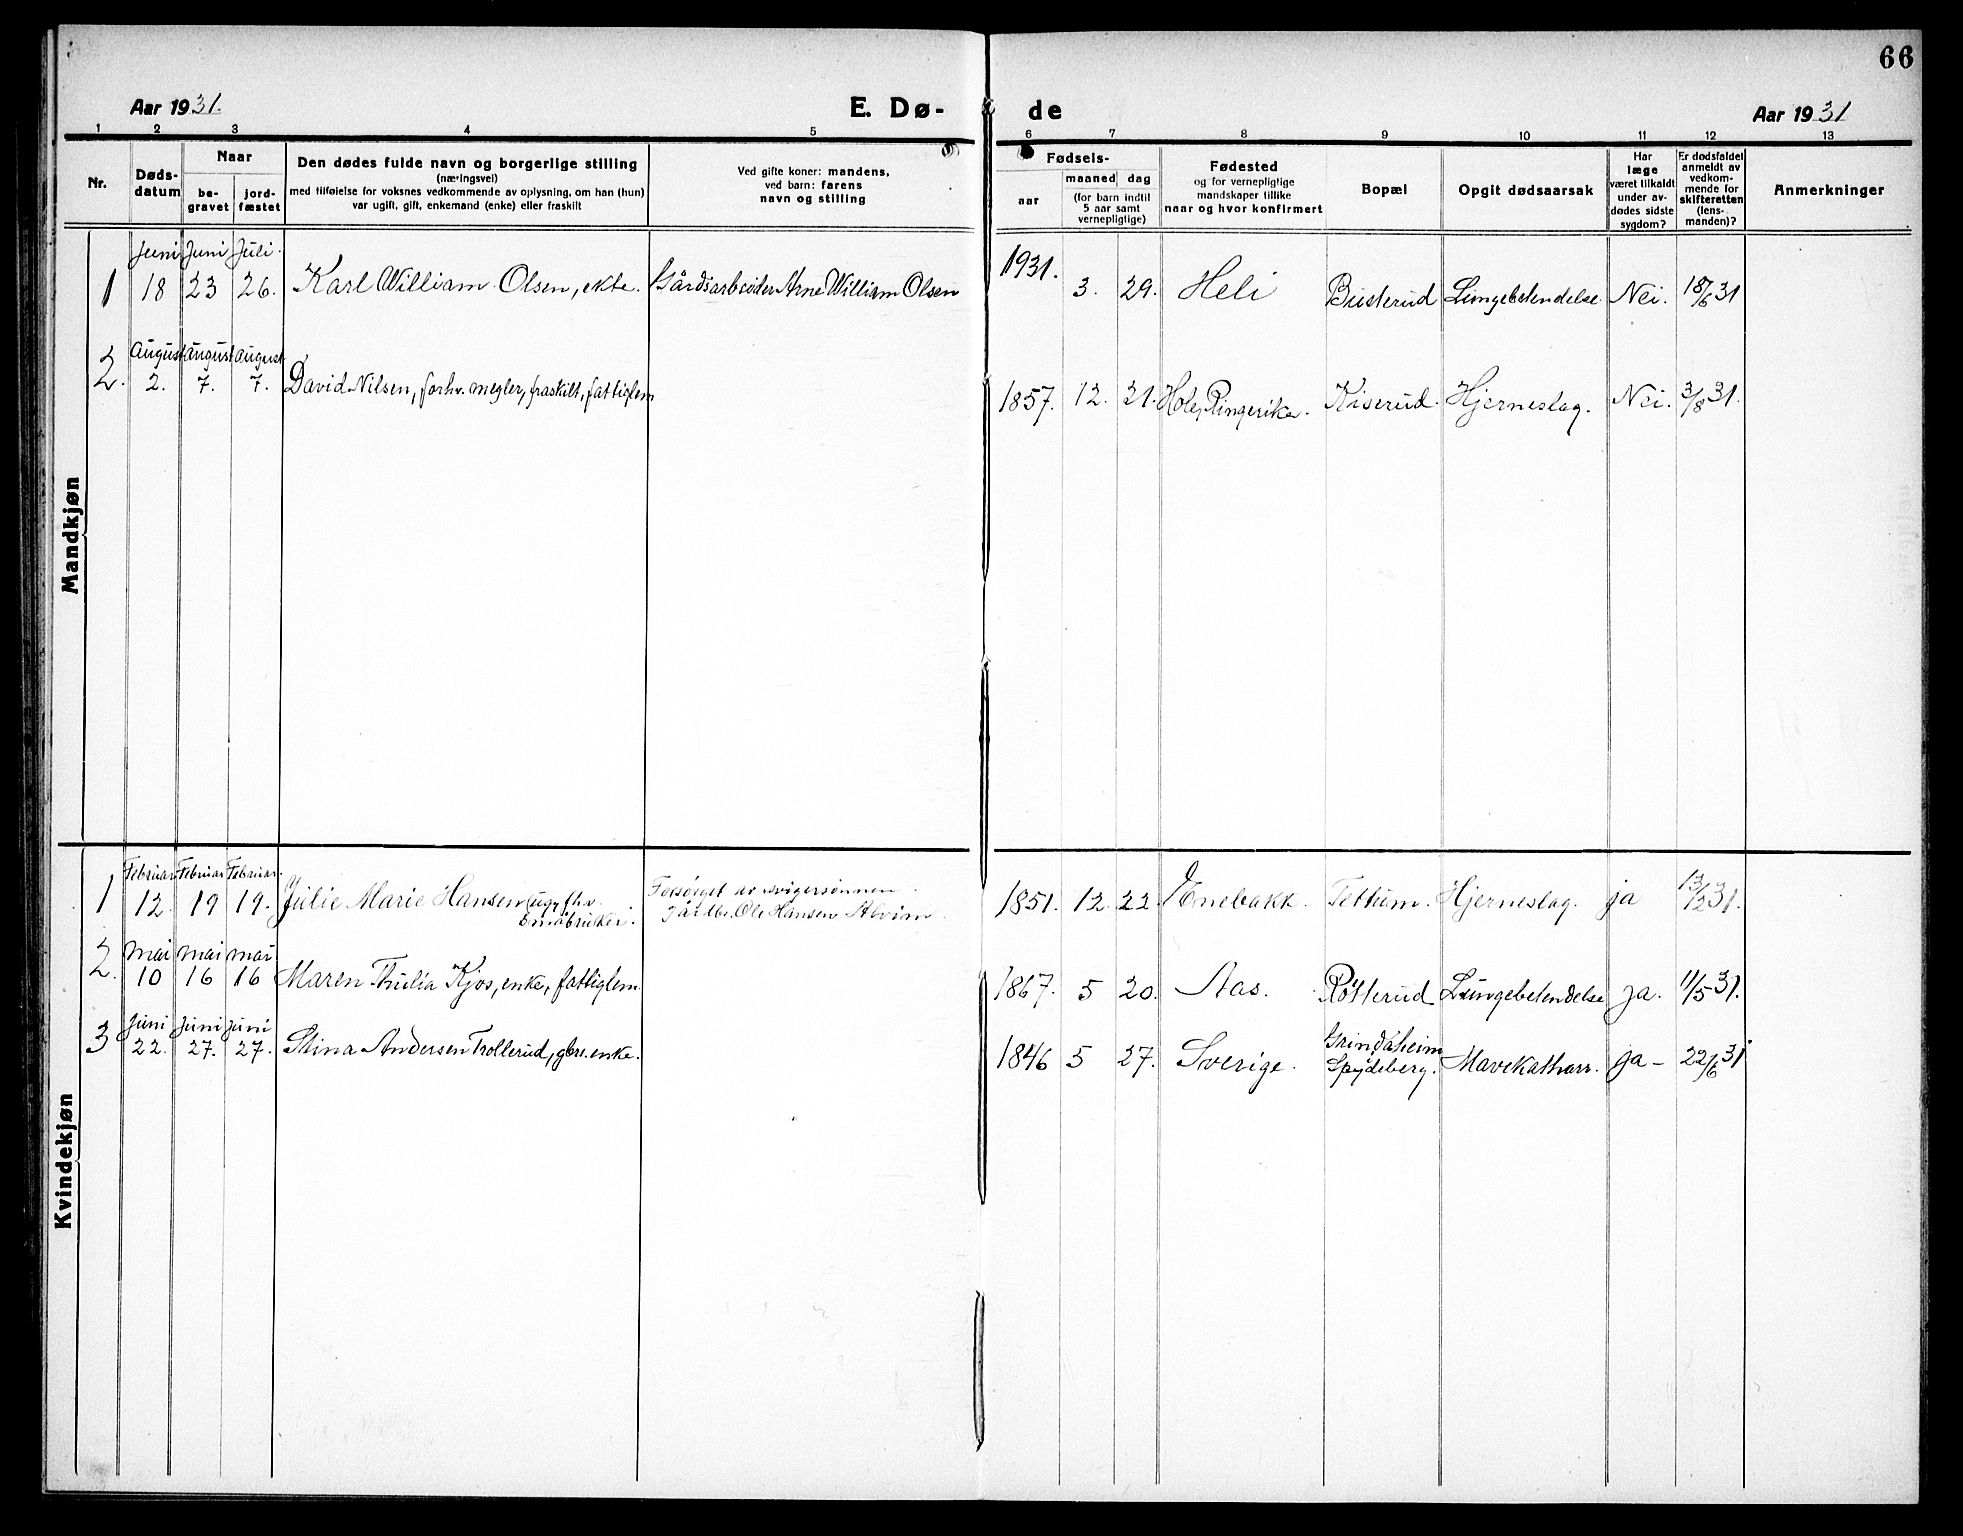 66
Aar 1931.
E. Dø-
de
Aar 1931
1 2 3 4 5 6 7 8 9 10 11 12 13
Nr.
Døds-
datum
Naar
be-
gravet
jord-
fæstet
Den dødes fulde navn og borgerlige stilling
(næringsvei)
med tilføielse for voksnes vedkommende av oplysning, om han (hun)
var ugift, gift, enkemand (enke) eller fraskilt
Ved gifte koner: mandens,
ved barn: farens
navn og stilling
Fødsels-
aar
maaned dag
(for barn indtil
5 aar samt
vernepligtige)
Fødested
og for vernepligtige
mandskaper tillike
naar og hvor konfirmert
Bopæl
Opgit dødsaarsak
Har
læge
været tilkaldt
under av-
dødes sidste
sygdom?
Er dødsfaldet
anmeldt av
vedkom-
mende for
skifteretten
(lens-
manden)?
Anmerkninger
Mandkjøn
Juni Juni Juli.
1 18 23 26. Karl William Olsen, ekte. Gårdsarbeider Arne William Olsen 1931. 3. 29. Heli Busterud Lungebetendelse. Nei. 18/6 31
August August August
2. 2. 7. 7. David Nilsen, forhv. megler, fraskilt, fattiglem 1857. 12. 21. Hole, Ringerike. Kiserud. Hjerneslag. Nei. 3/8 31.
Kvindekjøn
Februar Februar Februar
1 12. 19 19. Julie Marie Hansen, ug., fhv. Forsørget av svigersønnen 1851. 12. 22. Enebakk. Tettum. Hjerneslag. ja 13/12 31.
småbruker. Gårdbr. Ole Hansen Alvim.
mai mai mai
2. 10 16 16 Maren Thulia Kjos, enke, fattiglem 1867. 5 20. Aas. Røtterud Lungebetendelse ja. 11/5 31.
Juni Juni Juni
3 22. 27. 27. Stina Andersen Trollerud, gbrs. enke. 1846 5 27. Sverige. Grindäheim Spydeberg. Mavekatharr. ja – 22/6 31